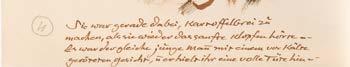 4
Sie war gerade dabei, Kartoffelbrei zu
machen, als sie wieder das sanfte Klopfen hörte –
Er war der gleiche junge Mann mit einem vor Kälte
geröteten Gesicht, u er hielt ihr eine volle Tüte hin –